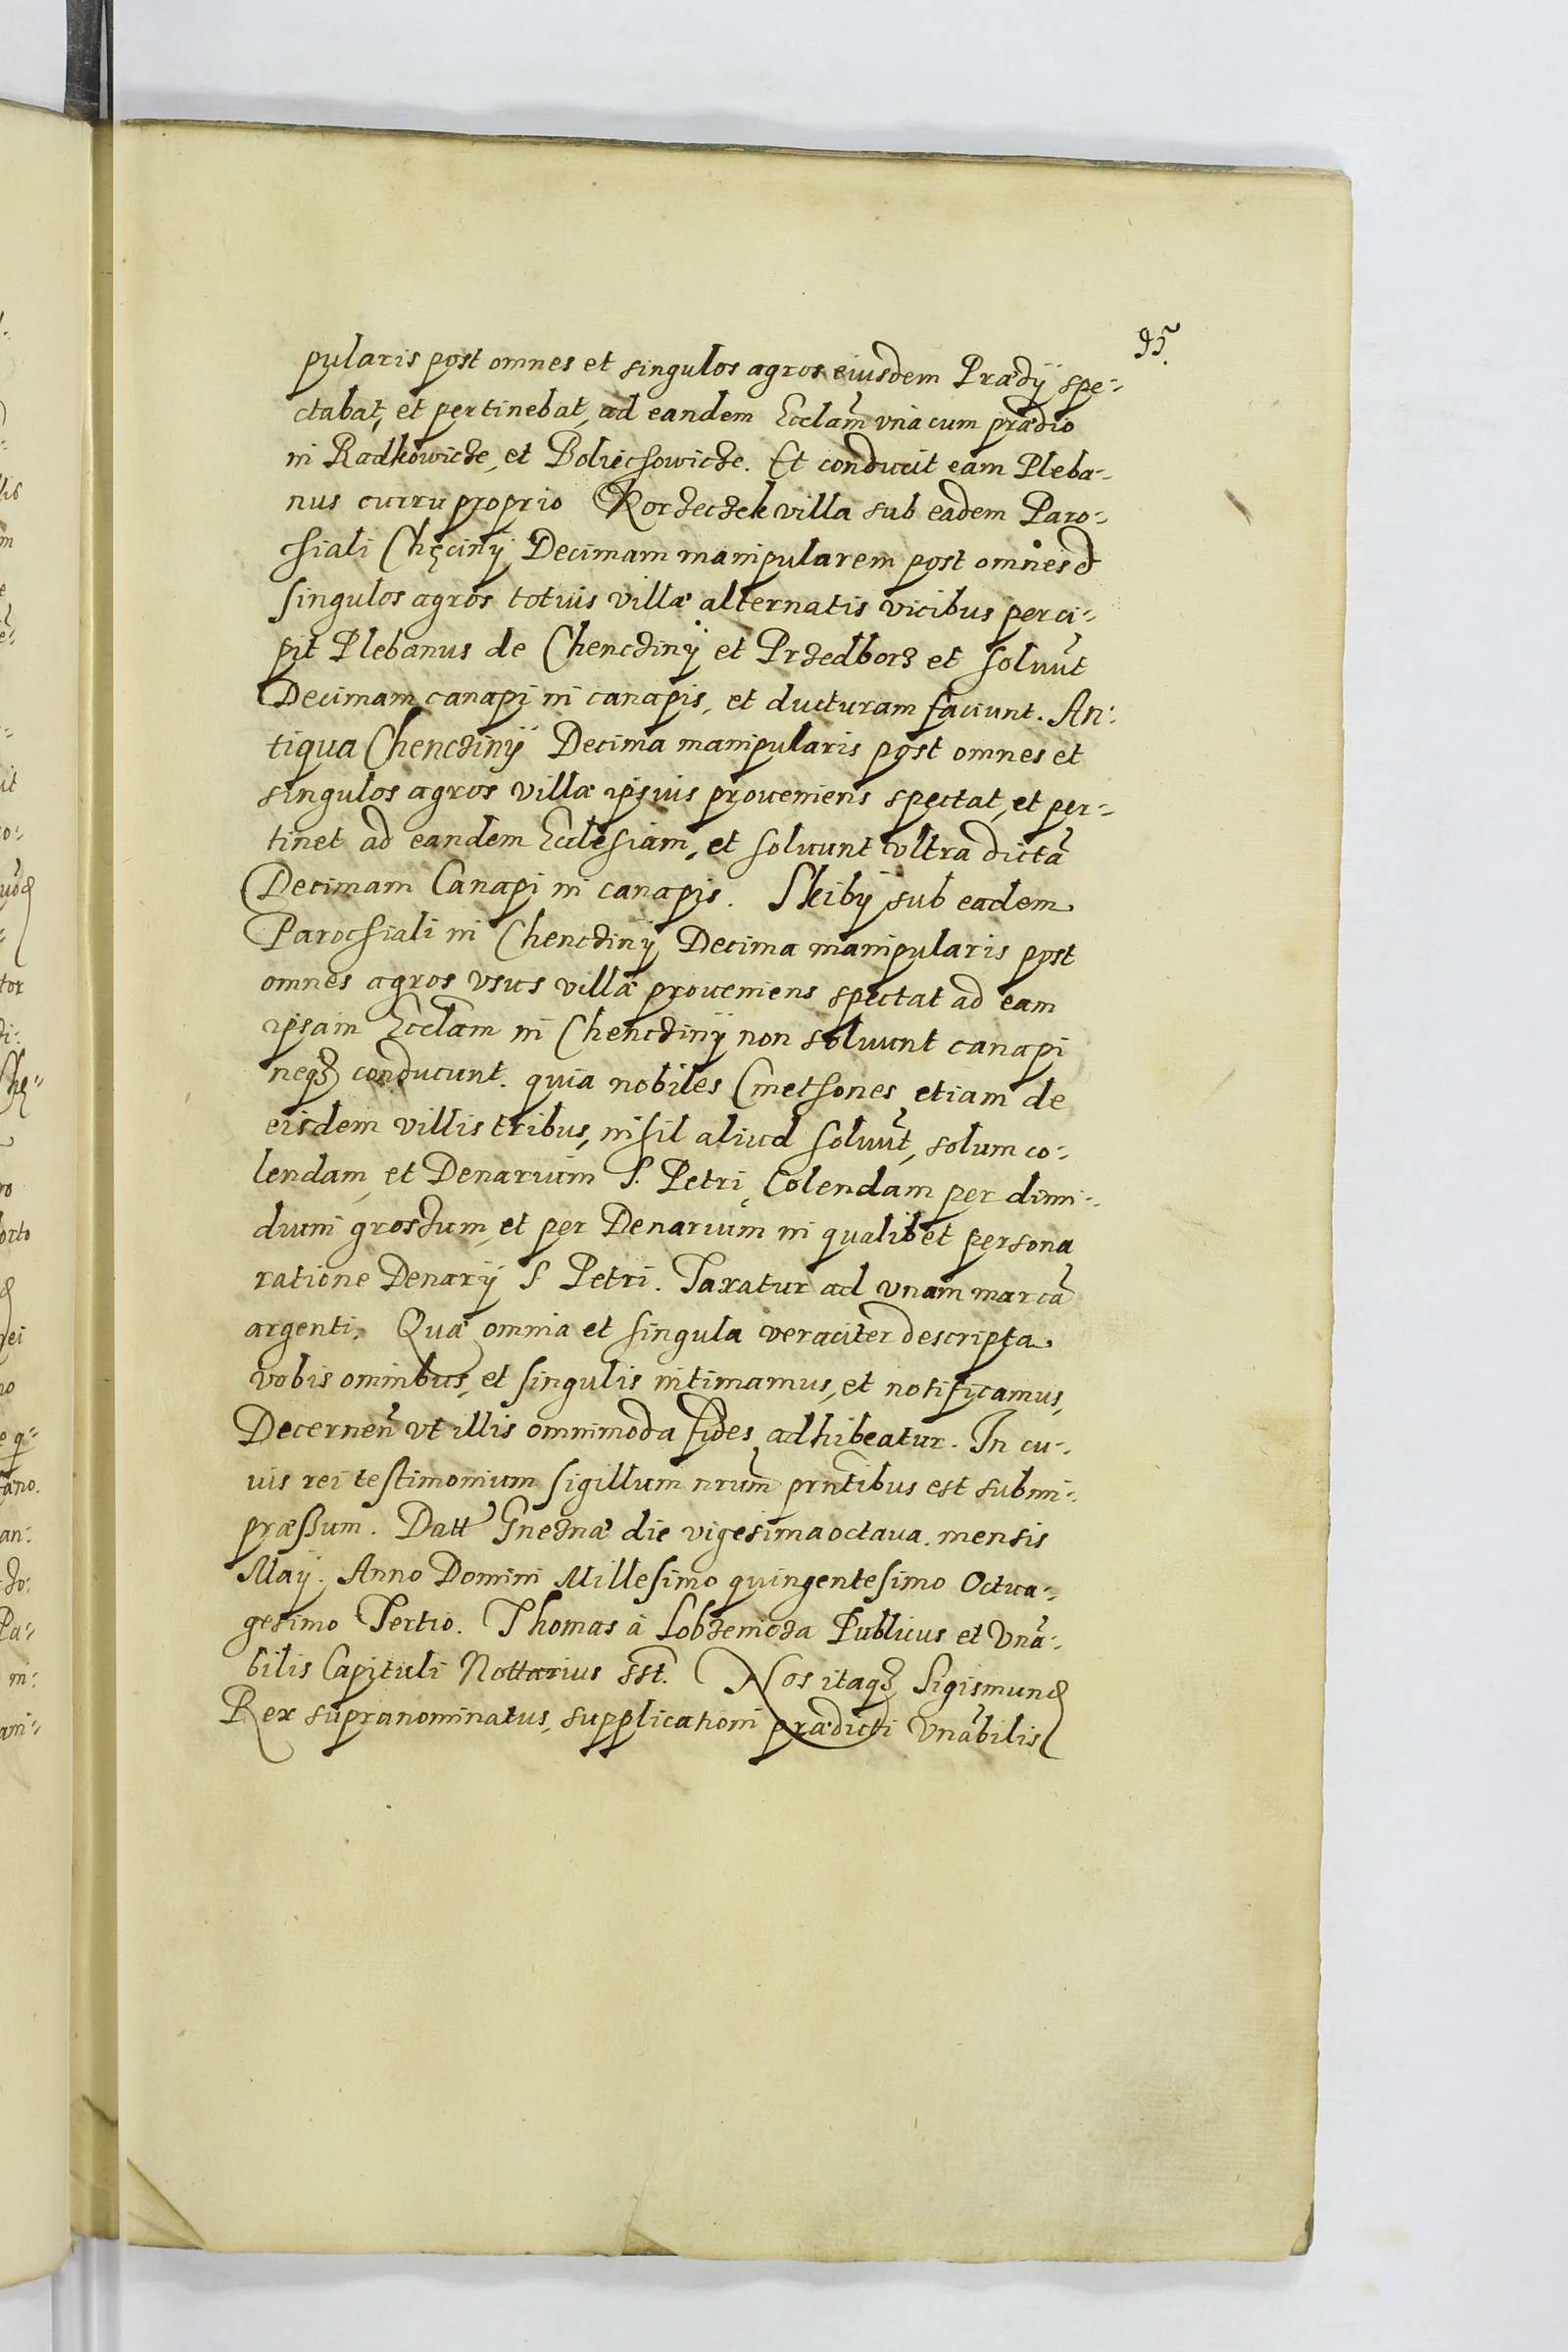 95.
pularis post omnes et singulos agros eiusdem Prædÿ spe-
ctabat, et pertinebat, ad eandem Ecclãm vnà cum prædio
in Radkowicze, et Boliechowicze. Et conducit eam Pleba-
nus curru proprio Korzeczek villa sub eadem Paro-
chiali Chęcinÿ Decimam manipularem post omnes et
singulos agros totius villæ alternatis vicibus perci-
pit Plebanus de Chenczinÿ et Przedborz et soluũt
Decimam canapi in canapis, et ducturam faciunt. An-
tiqua Chenczinÿ Decima manipularis post omnes et
singulos agros villæ ipsius proueniens spectat, et per-
tinet ad eandem Ecclesiam, et soluunt vltra dictã
Decimam Canapi in canapis. Skibÿ sub eadem
Parochiali in Chenczinÿ Decima manipularis post
omnes agros vsus villæ proueniens spectat ad eam
ipsam Ecclãm in Chencziny non soluunt canapi
neqȝ conducunt. quia nobiles Cmethones etiam de
eisdem villis tribus, nihil aliud soluũt, solum co-
lendam, et Denarium S. Petri, Colendam per dimi-
dium grossum, et per Denarium in qualibet persona
ratione Denarÿ S Petri. Taxatur ad vnam marcã
argenti. Quæ omnia et singula veraciter descripta
vobis omnibus, et singulis intimamus, et notificamus,
Decerneñ vt illis omnimoda fides adhibeatur. In cu-
ius rei testimonium sigillum nrũm prñtibus est subim-
præssum. Datt Gneznæ die vigesima octaua mensis
Maÿ. Anno Domini Millesimo quingentesimo Octua-
gesimo Tertio. Thomas à Lobzenicza Publicus et Vnã-
bilis Capituli Nottarius sst. Nos itaqȝ Sigismund9
Rex supranominatus, supplicationi prædicti Vnãbilis